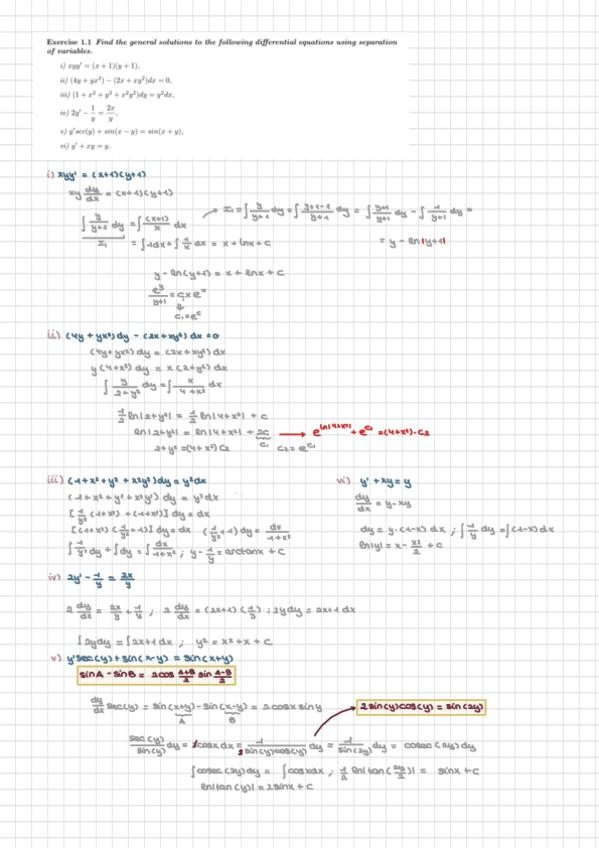 Exercise 1.1 Find the general solutions to the following differential equations using separation
of variables.
i) xyy' = (x + 1)(y + 1),
ii) (4y + yx²) − (2x + xy²)dx = 0,
iii) (1 + x² + y² + x²y²)dy = y²dx,
iv) 2y' − 1/y = 2x/y,
v) y'sec(y) + sin(x − y) = sin(x + y),
vi) y' + xy = y.
i) xyy' = (x+1)(y+1)
xy dy/dx = (x+1)(y+1)
∫ y/(y+1) dy = ∫ (x+1)/x dx
I₁ = ∫ y/(y+1) dy = ∫ (y+1-1)/(y+1) dy = ∫ (y+1)/(y+1) dy - ∫ 1/(y+1) dy =
I₁ = ∫1dx + ∫ 1/x dx = x + lnx + C
= y - ln|y+1|
y - ln(y+1) = x + lnx + C
e^y/(y+1) = C₁xe^x
C₁ = e^C
ii) (4y + yx²) dy - (2x + xy²) dx = 0
(4y + yx²) dy = (2x + xy²) dx
y(4+x²) dy = x(2+y²) dx
∫ y/(2+y²) dy = ∫ x/(4+x²) dx
1/2 ln|2+y²| = 1/2 ln|4+x²| + C
ln|2+y²| = ln|4+x²| + 2C → e^(ln|4+x²|) + e^(C₁) = (4+x²)·C₂
C₁
2+y² = (4+x²) C₂ C₂ = e^(C₁)
iii) (1+x² + y² + x²y²) dy = y²dx
(1+x² + y² + x²y²) dy = y²dx
[1/y² (1+x²) + (1+x²)] dy = dx
[(1+x²) (1/y² + 1)] dy = dx (1/y² + 1) dy = dx/(1+x²)
∫ 1/y² dy + ∫dy = ∫ dx/(1+x²) ; y - 1/y = arctanx + C
vi) y' + xy = y
dy/dx = y - xy
dy = y·(1-x) dx ; ∫ 1/y dy = ∫(1-x) dx
ln|y| = x - x²/2 + C
iv) 2y' - 1/y = 2x/y
2 dy/dx = 2x/y + 1/y ; 2 dy/dx = (2x+1) (1/y) ; 2ydy = 2x+1 dx
∫2ydy = ∫2x+1 dx ; y² = x² + x + C
v) y'sec(y) + sin(x-y) = sin(x+y)
sinA - sinB = 2cos (A+B)/2 sin (A-B)/2
dy/dx sec(y) = sin(x+y) - sin(x-y) = 2cosx siny
A B
2sin(y)cos(y) = sin(2y)
sec(y)/sin(y) dy = 2cosx dx = 1/(2sin(y)cos(y)) dy = 1/sin(2y) dy = cosec(2y) dy
∫cosec(2y) dy = ∫cosxdx ; 1/2 ln|tan(2y/2)| = sinx + C
ln|tan(y)| = 2sinx + C